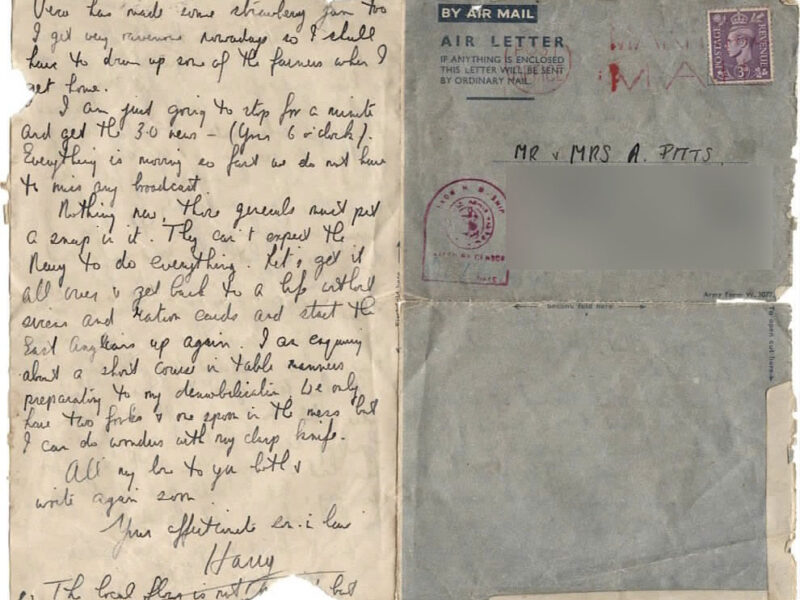 Vera has made some strawberry jam too
I get very ravenous nowadays so I shall
have to draw up some of the fairness when I
get home.
I am just going to stop for a minute
and get the 3.0 news – (Yours 6 o'clock).
Everything is moving so fast we do not have
to miss any broadcast.
Nothing new, those generals must put
a snap in it. They can't expect the
Navy to do everything. Let's get it
all over & get back to a life without
sirens and ration cards and start the
East Anglians up again. I am enquiring
about a short course in table manners
preparatory to my demobilisation. We only
have two forks & one spoon in the mess but
I can do wonders with my clasp knife.
All my love to you both &
write again soon.
Your affectionate son-in-law
Harry
The local is not but
BY AIR MAIL
AIR LETTER
IF ANYTHING IS ENCLOSED
THIS LETTER WILL BE SENT
BY ORDINARY MAIL.
POSTAGE
REVENUE
3D
MR & MRS A. PITTS.
FROM H.M. SHIP
CENSOR
Army Form W. 3077
Second fold here
To open cut here